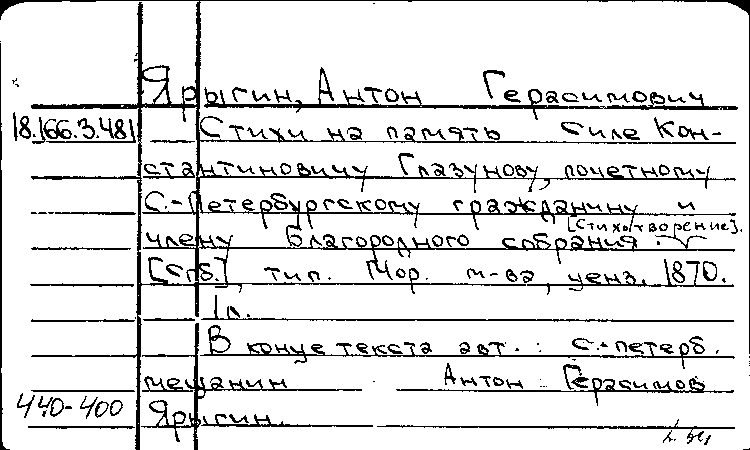 Ярыгин, Антон Герасимович
18.166.3.481 Стихи на память Силе Кон-
стантиновичу Глазунову, почетному
С.-Петербургскому гражданину и
[Стихотворение].
члену Благородного собрания.
[Спб.], тип. Мор. м-ва, ценз. 1870.
1 л.
В конце текста авт.: С.-петерб.
мещанин Антон Герасимов
440-400 Ярыгин.